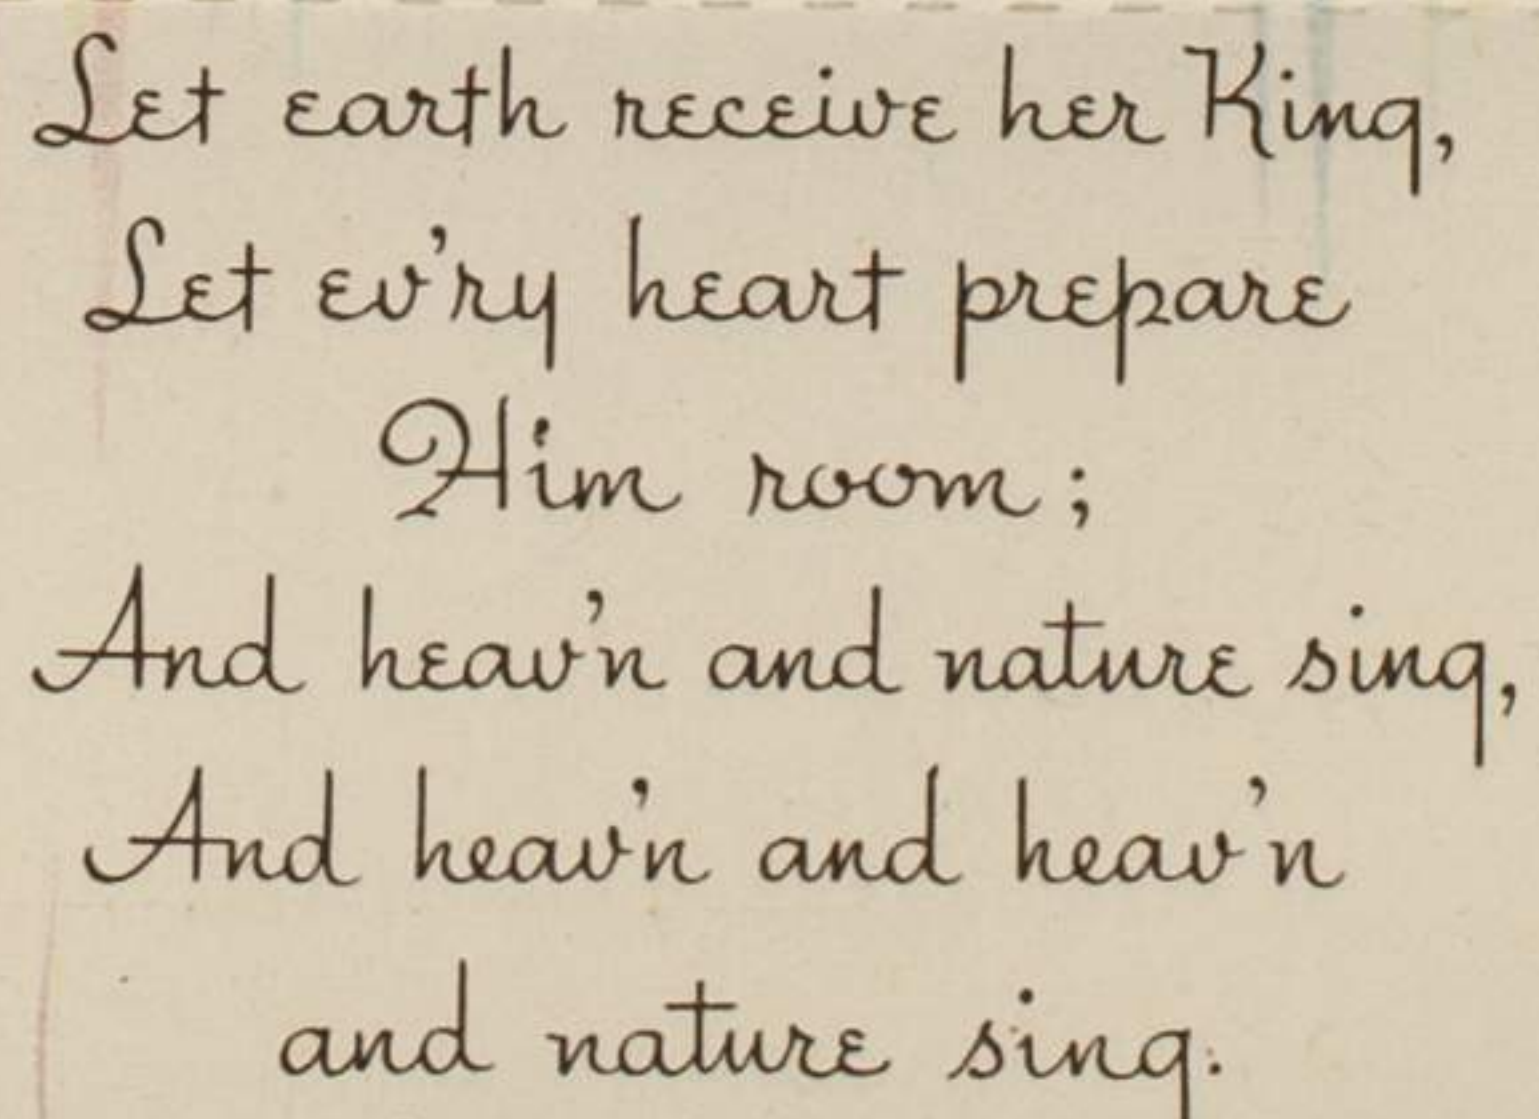 Let earth receive her King,
Let ev'ry heart prepare
Him room;
And heav'n and nature sing,
And heav'n and heav'n
and nature sing.